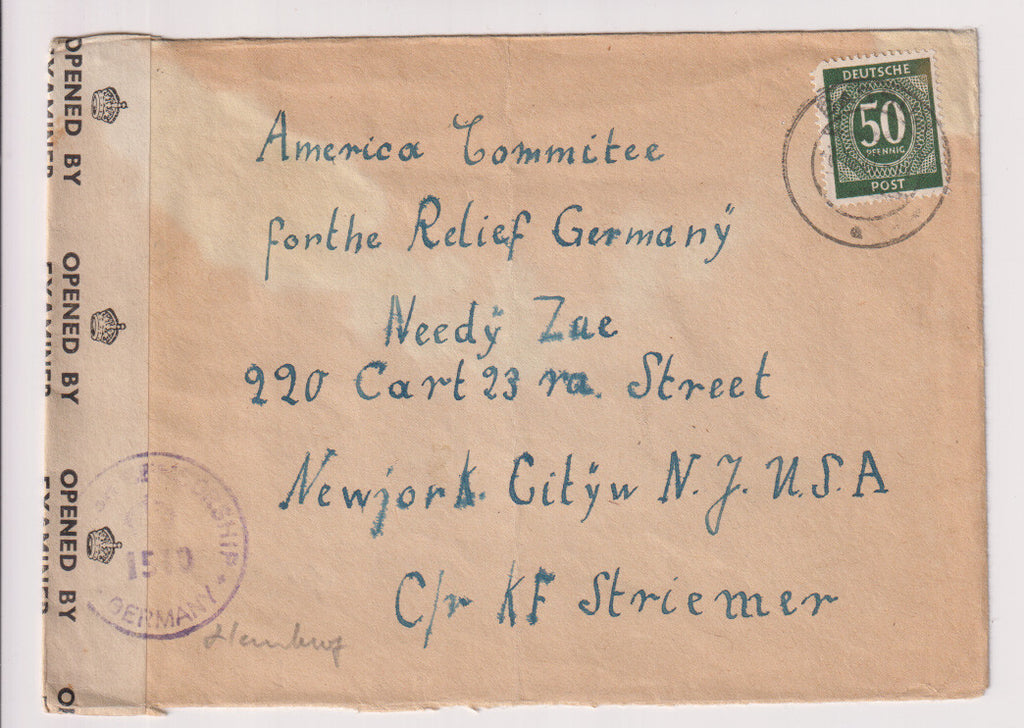 DEUTSCHE
50
PFENNIG
POST
America Commitee
forthe Relief Germanÿ
Needÿ Zae
220 Cart 23 ra. Street
Newjork. Citÿw N.J. U.S.A
C/r KF Striemer
OPENED BY
EXAMINER
OPENED BY
EXAMINER
OPENED BY
EXAMINER
CENSORSHIP
1510
GERMANY
Hamburg